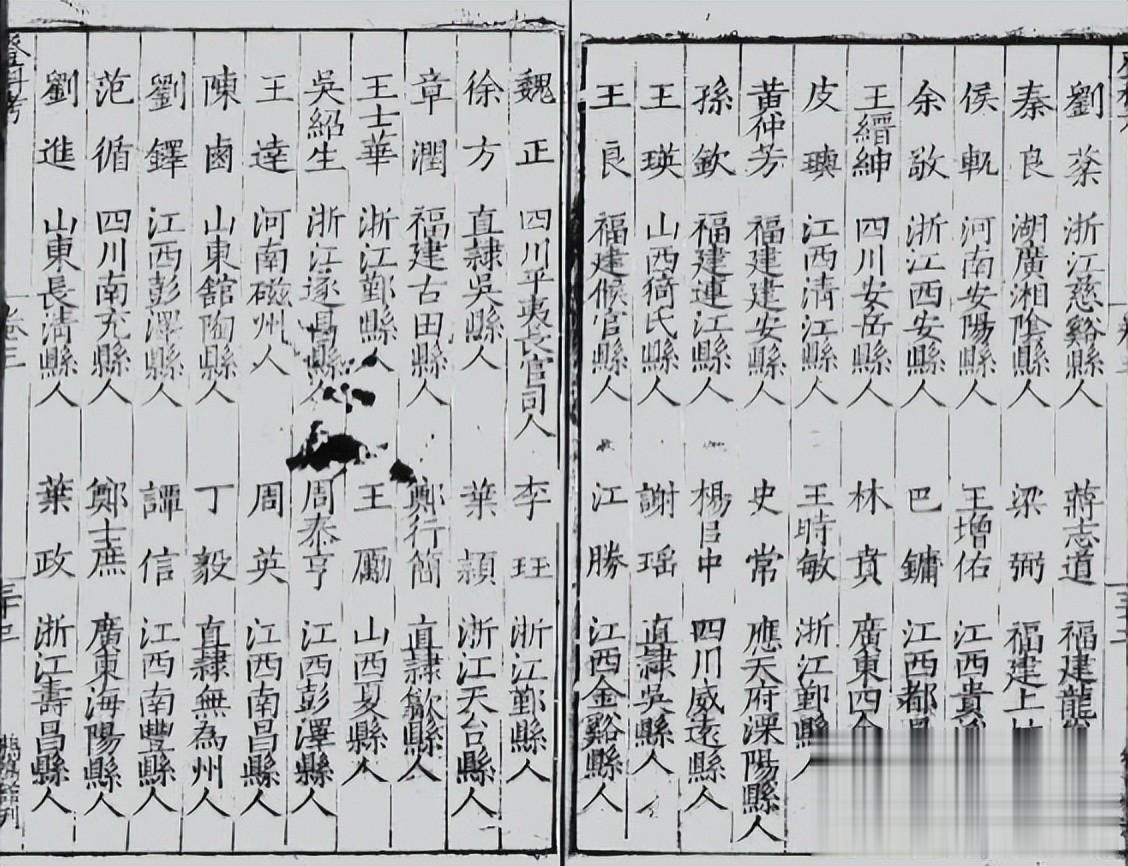 劉葇 浙江慈谿縣人
蔣志道 福建龍
秦良 湖廣湘陰縣人
梁弼 福建上
侯軏 河南安陽縣人
王增佑 江西貴
余敬 浙江西安縣人
巴鏞 江西都昌
王縉紳 四川安岳縣人
林賁 廣東四會
皮璵 江西清江縣人
王時敏 浙江鄞縣人
黃仲芳 福建建安縣人
史常 應天府溧陽縣人
孫欽 福建連江縣人
楊中 四川威遠縣人
王瑛 山西猗氏縣人
謝瑶 直隷吳縣人
王良 福建候官縣人
江勝 江西金谿縣人
魏正 四川平夷長官司人
李玨 浙江鄞縣人
徐方 直隷吳縣人
葉穎 浙江天台縣人
章潤 福建古田縣人
鄭行簡 直隷歙縣人
王士華 浙江鄞縣人
王勵 山西夏縣人
吳紹生 浙江遂昌縣人
周泰亨 江西彭澤縣人
王逹 河南磁州人
周英 江西南昌縣人
陳鹵 山東舘陶縣人
丁毅 直隷無為州人
劉鐸 江西彭澤縣人
譚信 江西南豐縣人
范循 四川南充縣人
鄭士庶 廣東海陽縣人
劉進 山東長清縣人
葉政 浙江壽昌縣人
登科考
卷三